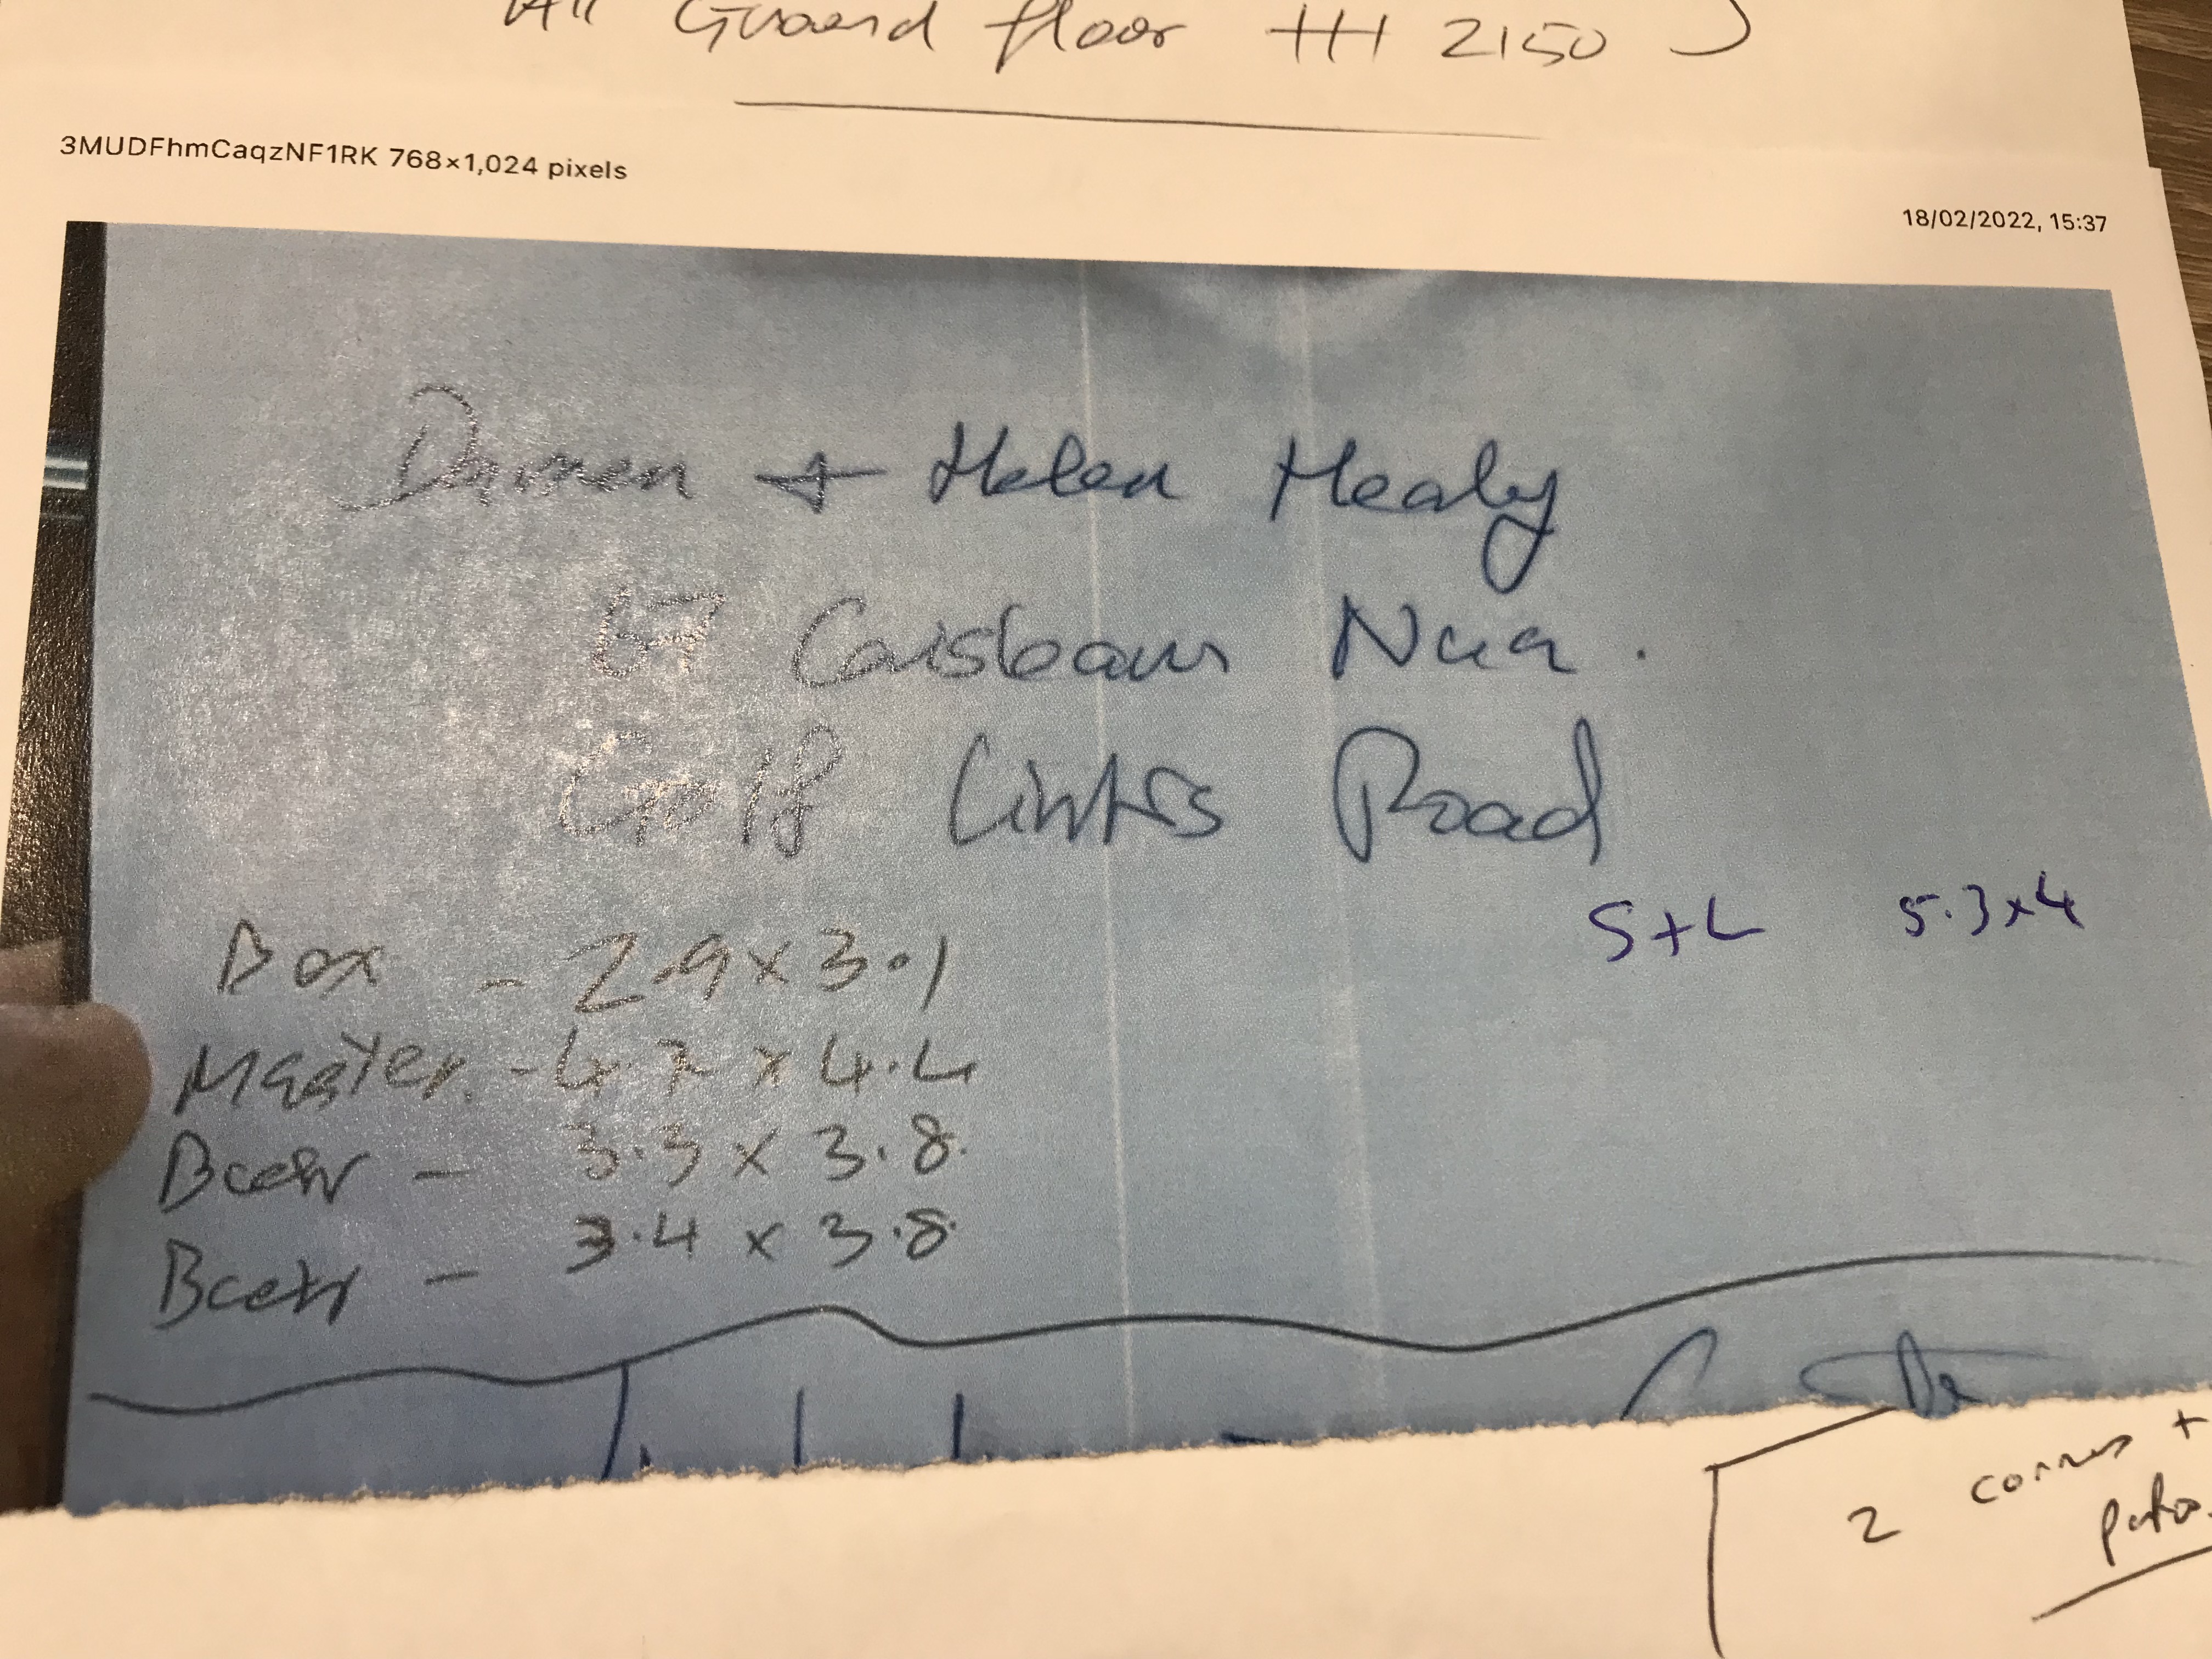 All Ground floor HH 2150
3MUDFhmCaqzNF1RK 768×1,024 pixels
18/02/2022, 15:37
+ Helen Healy
67 Caislean Nua.
Golf Links Road
S+L 5.3x4
Box - 2.9 x 3.1
Master. - 4.7 x 4.4
- 3.3 x 3.8.
- 3.4 x 3.8.
2 corners +